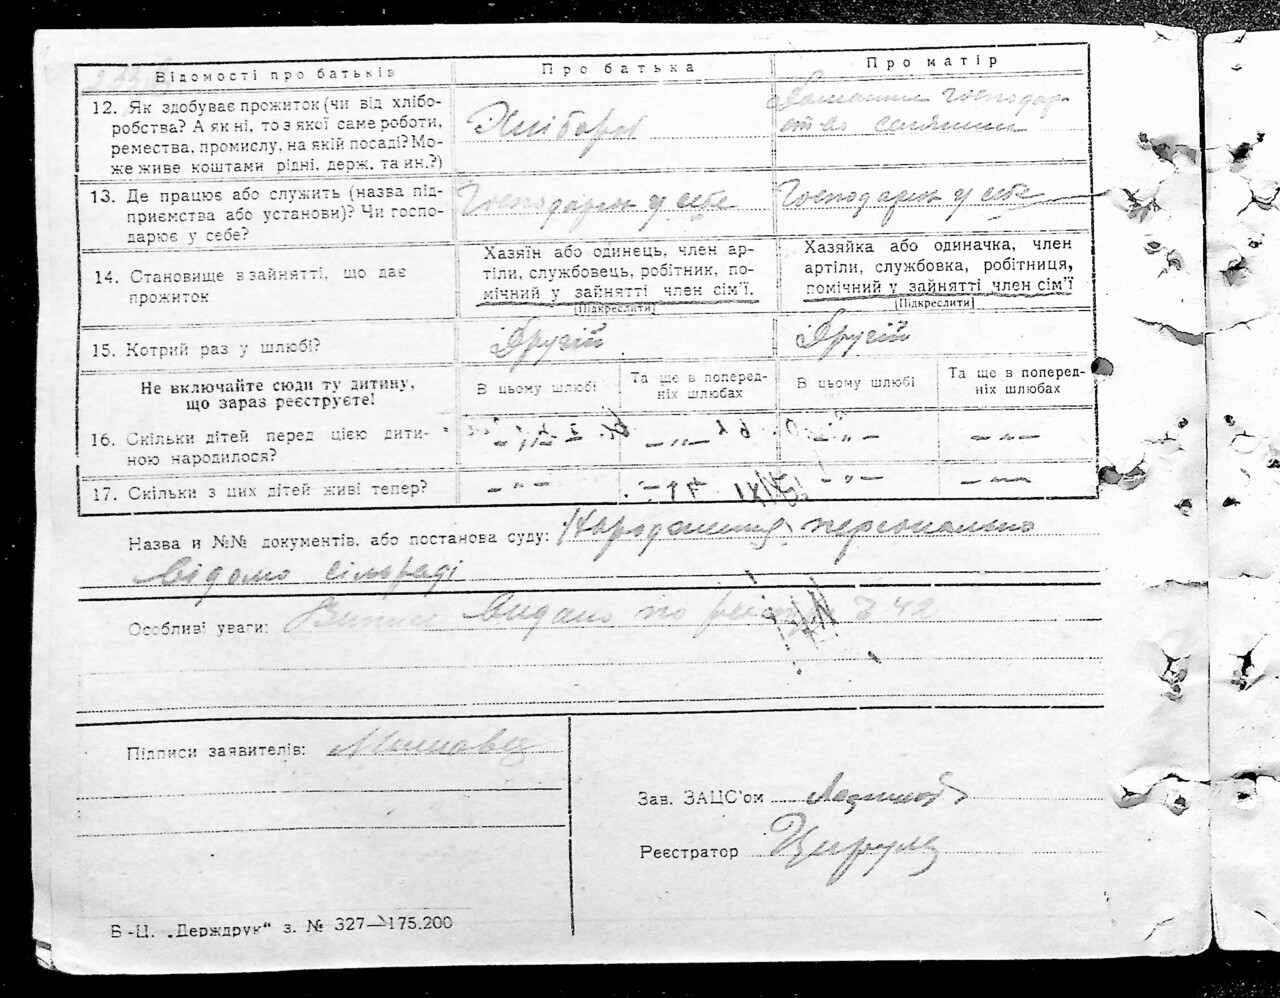 Відомості про батьків
Про батька
Про матір
12. Як здобуває прожиток (чи від хлібо-
робства? А як ні, то з якої саме роботи,
ремества, промислу, на якій посаді? Мо-
же живе коштами рідні, держ. та ин.?)
Хлібороб
Домашнє господар-
ство селянин
13. Де працює або служить (назва під-
приємства або установи)? Чи госпо-
дарює у себе?
Господарює у себе
Господарює у себе
14. Становище в зайнятті, що дає
прожиток
Хазяїн або одинець, член ар-
тіли, службовець, робітник, по-
мічний у зайнятті член сім'ї.
[Підкреслити]
Хазяйка або одиначка, член
артіли, службовка, робітниця,
помічний у зайнятті член сім'ї
[Підкреслити]
15. Котрий раз у шлюбі?
Другій
Другій
Не включайте сюди ту дитину,
що зараз реєструєте!
В цьому шлюбі
Та ще в поперед-
ніх шлюбах
В цьому шлюбі
Та ще в поперед-
ніх шлюбах
16. Скільки дітей перед цією дити-
ною народилося?
– „ –
– „ –
– „ –
– „ –
17. Скільки з цих дітей живі тепер?
– „ –
– „ –
– „ –
Назва и №№ документів, або постанова суду: Народження персонально
відомо сільраді
Особливі уваги: Видано по 342
Підписи заявителів:
Зав. ЗАЦС'ом
Реєстратор
Б-Ц. „Держдрук“ з. № 327—175.200